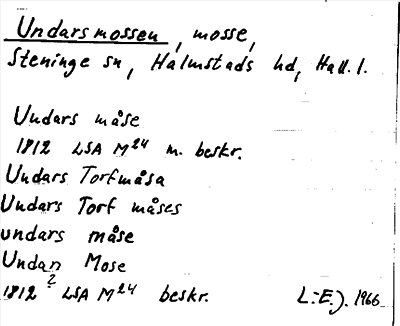 Undarsmossen, mosse,
Steninge sn, Halmstads hd, Hall. l.
Undars måse
1812 LSA M24 m. beskr.
Undars Torfmåsa
Undars Torf måses
undars måse
Undan Mose
?
1812 LSA M24 beskr. L:E.J. 1966